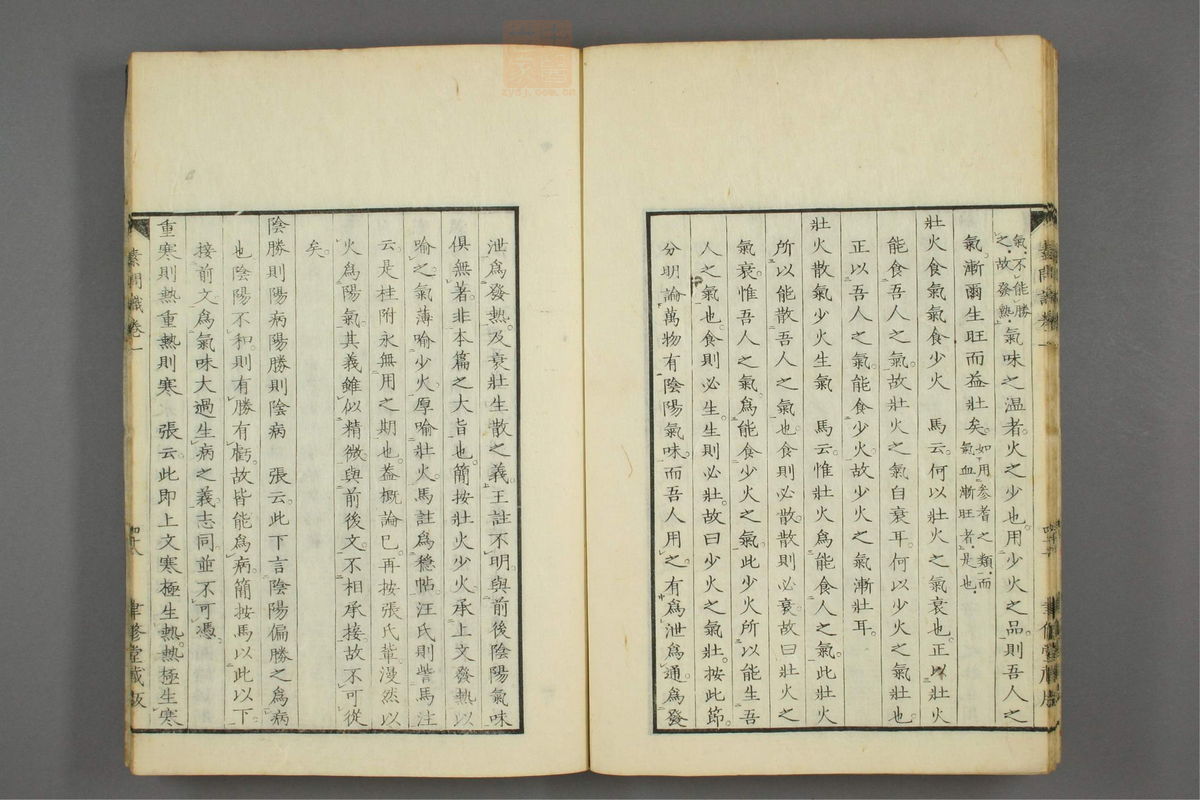 氣不能勝之故發熱氣味之温者火之少也用少火之品則吾人之
氣漸爾生旺而益壯矣如用參耆之類而氣血漸旺者是也
壯火食氣氣食少火 馬云何以壯火之氣衰也正以壯火
能食吾人之氣故壯火之氣自衰耳何以少火之氣壯也
正以吾人之氣能食少火故少火之氣漸壯耳
壯火散氣少火生氣 馬云惟壯火爲能食人之氣此壯火
所以能散吾人之氣也食則必散散則必衰故曰壯火之
氣衰惟吾人之氣爲能食少火之氣此少火所以能生吾
人之氣也食則必生生則必壯故曰少火之氣壯按此節
分明論萬物有陰陽氣味而吾人用之有爲泄爲通爲發
泄爲發熱及衰壯生散之義王註不明與前後陰陽氣味
俱無著非本篇之大旨也簡按壯火少火承上文發熱以
喻之氣薄喻少火厚喻壯火馬註爲穩帖汪氏則訾馬注
云是桂附永無用之期也蓋概論已再按張氏輩漫然以
火爲陽氣其義雖似精微與前後文不相承接故不可從
矣
陰勝則陽病陽勝則陰病 張云此下言陰陽偏勝之爲病
也陰陽不和則有勝有虧故皆能爲病簡按馬以此以下
接前文爲氣味大過生病之義志同並不可憑
重寒則熱重熱則寒 張云此即上文寒極生熱熱極生寒
素問識卷一
四十八
聿修堂藏版